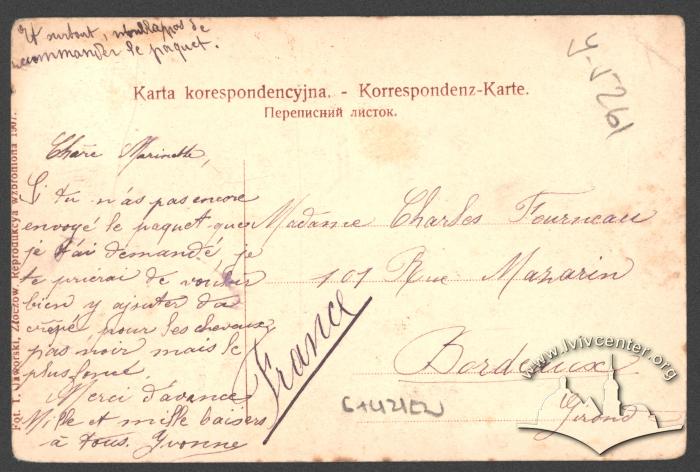 Et surtout, n'oublie pas de
recommander le paquet.
Karta korespondencyjna. - Korrespondenz-Karte.
Переписний листок.
Fot. T. Jaworski, Złoczów. Reprodukcya wzbroniona 1907.
Chère Marinette,
Si tu n'as pas encore
envoyé le paquet que
je t'ai demandé, je
te prierai de vouloir
bien y ajouter du
crêpé pour les cheveux,
pas noir mais le
plus foncé.
Merci d'avance
Mille et mille baisers
à tous. Yvonne
Madame Charles Fourneau
101 Rue Mazarin
Bordeaux
Gironde
France
www.lvivcenter.org